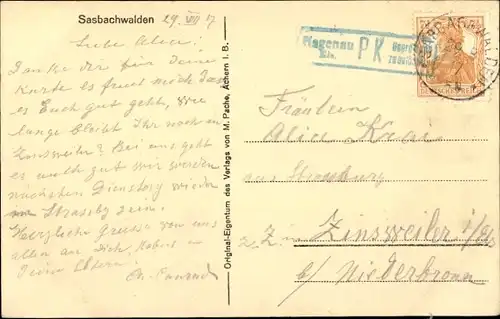 Sasbachwalden 29. VII 17
Liebe Alice!
Danke dir für deine
Karte es freut mich das
es Euch gut geht, wie
lange bleibt Ihr noch in
Zinsweiler? Bei uns geht
es auch gut wir werden
nächsten Dienstag wieder
in Strassbg sein.
Herzliche Grüsse von uns
allen an dich, Robert u
Deine Eltern.
Original-Eigentum des Verlags von M. Pache, Achern i. B.
Hagenau
Els.
P K
SASBACHWALDEN
DEUTSCHES REICH
Fräulein
Alice
aus Strassburg
z. Z. in Zinsweiler i/Els
b/ Niederbronn